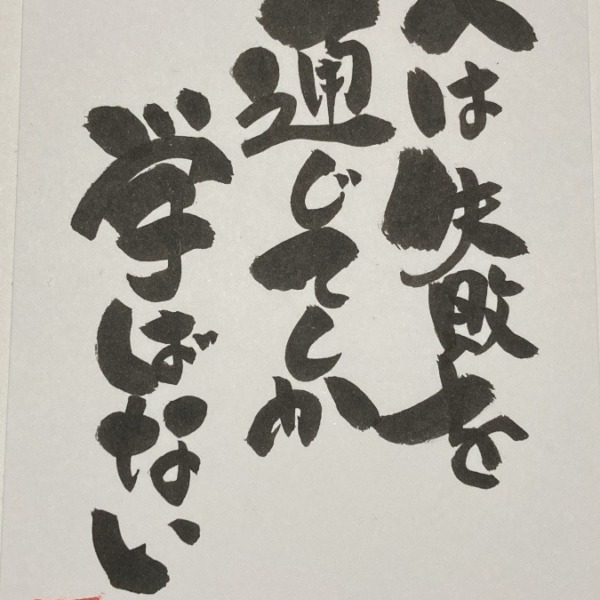 人は失敗を
通じてしか
学ばない